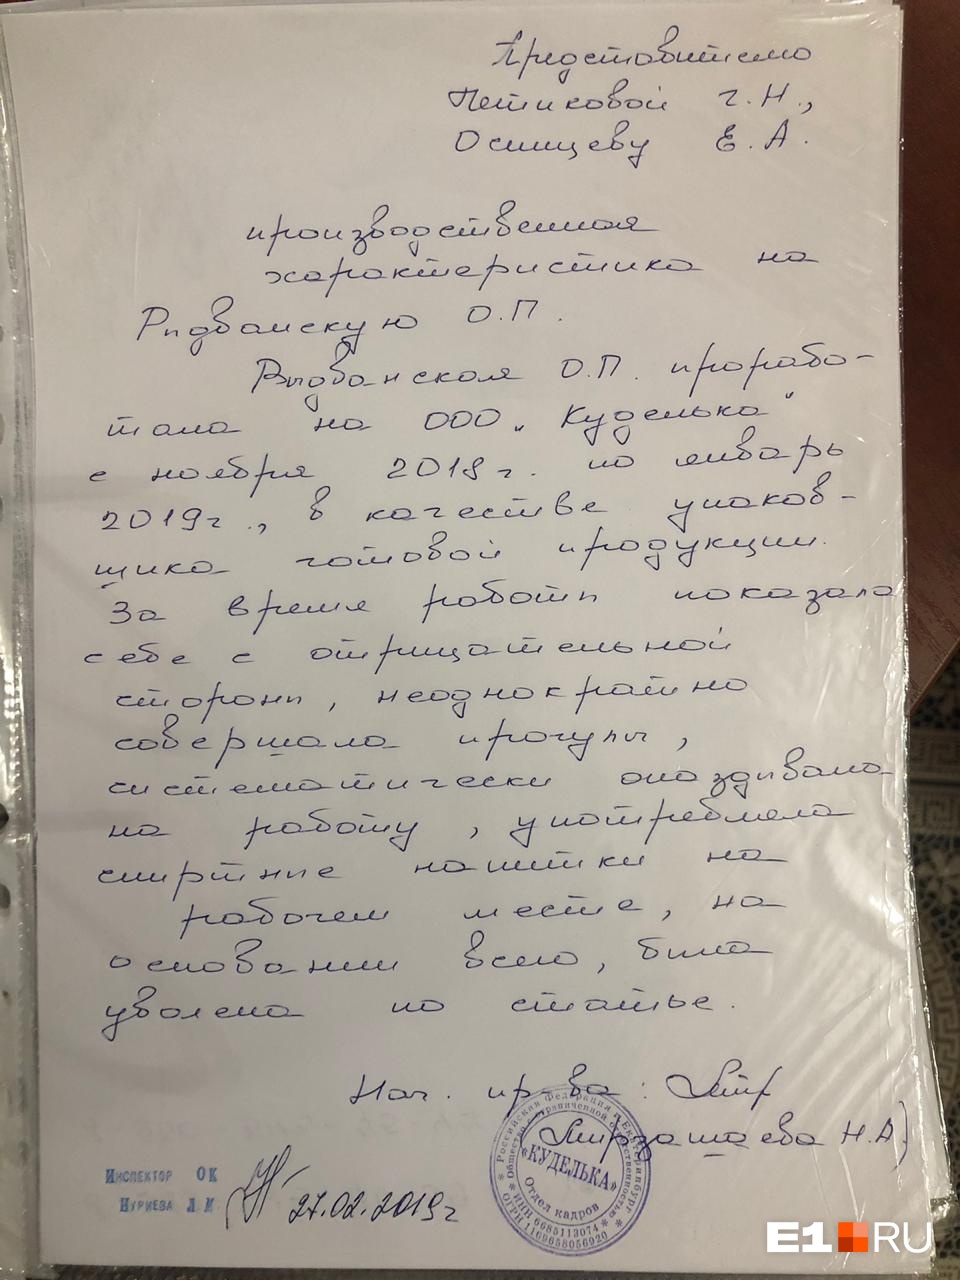 Представителю
Петиковой Г.Н.,
Осинцеву Е.А.
производственная
характеристика на
Рыдванскую О.П.
Рыдванская О.П. прорабо-
тала на ООО „Куделька"
с ноября 2018г. по январь
2019г., в качестве упаков-
щика готовой продукции.
За время работы показала
себе с отрицательной
стороны, неоднократно
совершала прогулы,
систематически опаздывала
на работу, употребляла
спиртные напитки на
рабочем месте, на
основании всего, была
уволена по статье.
Нач. пр-ва:
Мирзашаева Н.А)
Инспектор ОК
Нуриева Л.И
27.02.2019г
Российская Федерация г.Екатеринбург
Общество с ограниченной ответственностью
«КУДЕЛЬКА»
Отдел кадров
ИНН 6685113074
ОГРН 1169658056920
E1.RU